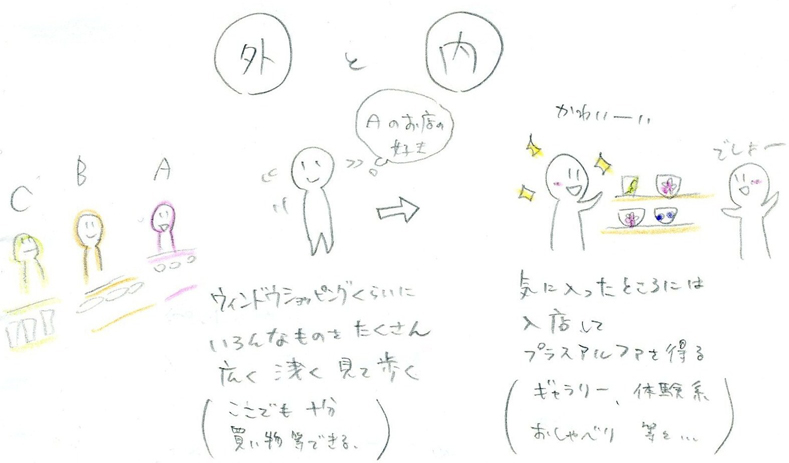 外 と 内
Aのお店の
好き
C B A
かわいーい
でしょー
ウィンドウショッピングくらいに
いろんなものをたくさん
広く浅く見て歩く
(ここでも十分
買い物等できる、)
気に入ったところには
入店して
プラスアルファを得る
(ギャラリー、体験系
おしゃべり 等を...)